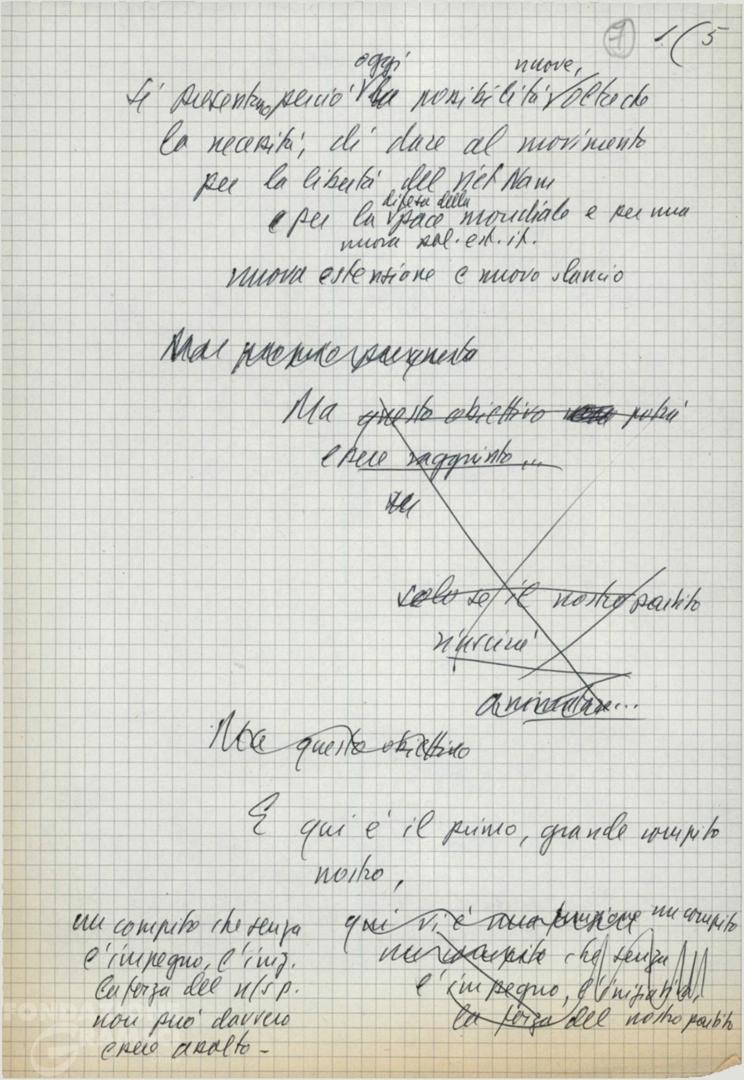 7 1(5
oggi nuove,
Si presentano perciò la possibilità oltreché
la necessità, di dare al movimento
per la libertà del Viet Nam
difesa della
e per la pace mondiale e per una
nuova pol. est. it.
nuova estensione e nuovo slancio
Ma questo obiettivo potrà
essere raggiunto...
solo se il nostro partito
riuscirà
animatore...
Ma questo obiettivo
E qui è il primo, grande compito
nostro,
un compito che senza
l'impegno, l'iniz.
la forza del n/s p.
non può davvero
essere assolto -
qui vi è una funzione un compito
un compito che senza
l'impegno, l'iniziativa,
la forza del nostro partito
FOND
G